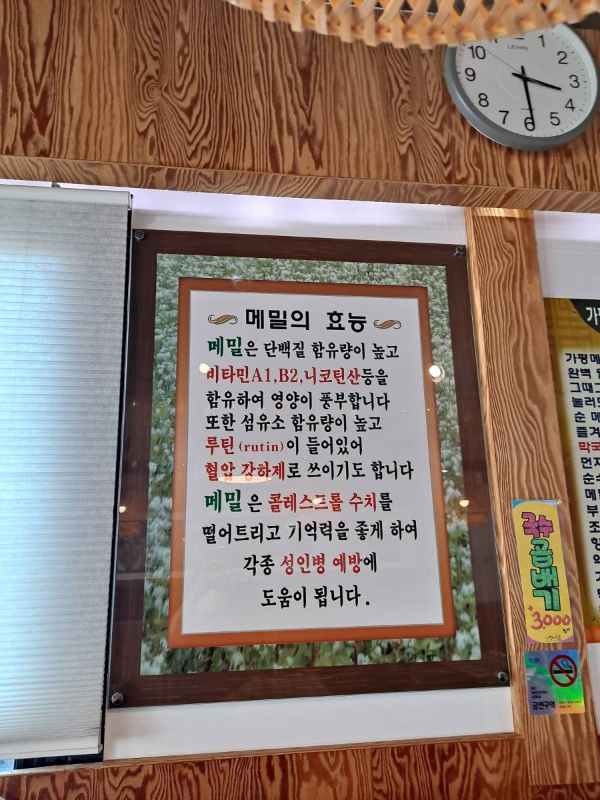 LEWIS
10 1 2 3 4 5 6 7 8 9
메밀의 효능
메밀은 단백질 함유량이 높고
비타민A1,B2,니코틴산등을
함유하여 영양이 풍부합니다
또한 섬유소 함유량이 높고
루틴(rutin)이 들어있어
혈압 강하제로 쓰이기도 합니다
메밀은 콜레스트롤 수치를
떨어트리고 기억력을 좋게 하여
각종 성인병 예방에
도움이 됩니다.
가평메
완벽
그때그
눌러
순 메
즐겨
막국
먼저
순수
메밀
부
조
국수
곱빼기
+3,000
금연구역